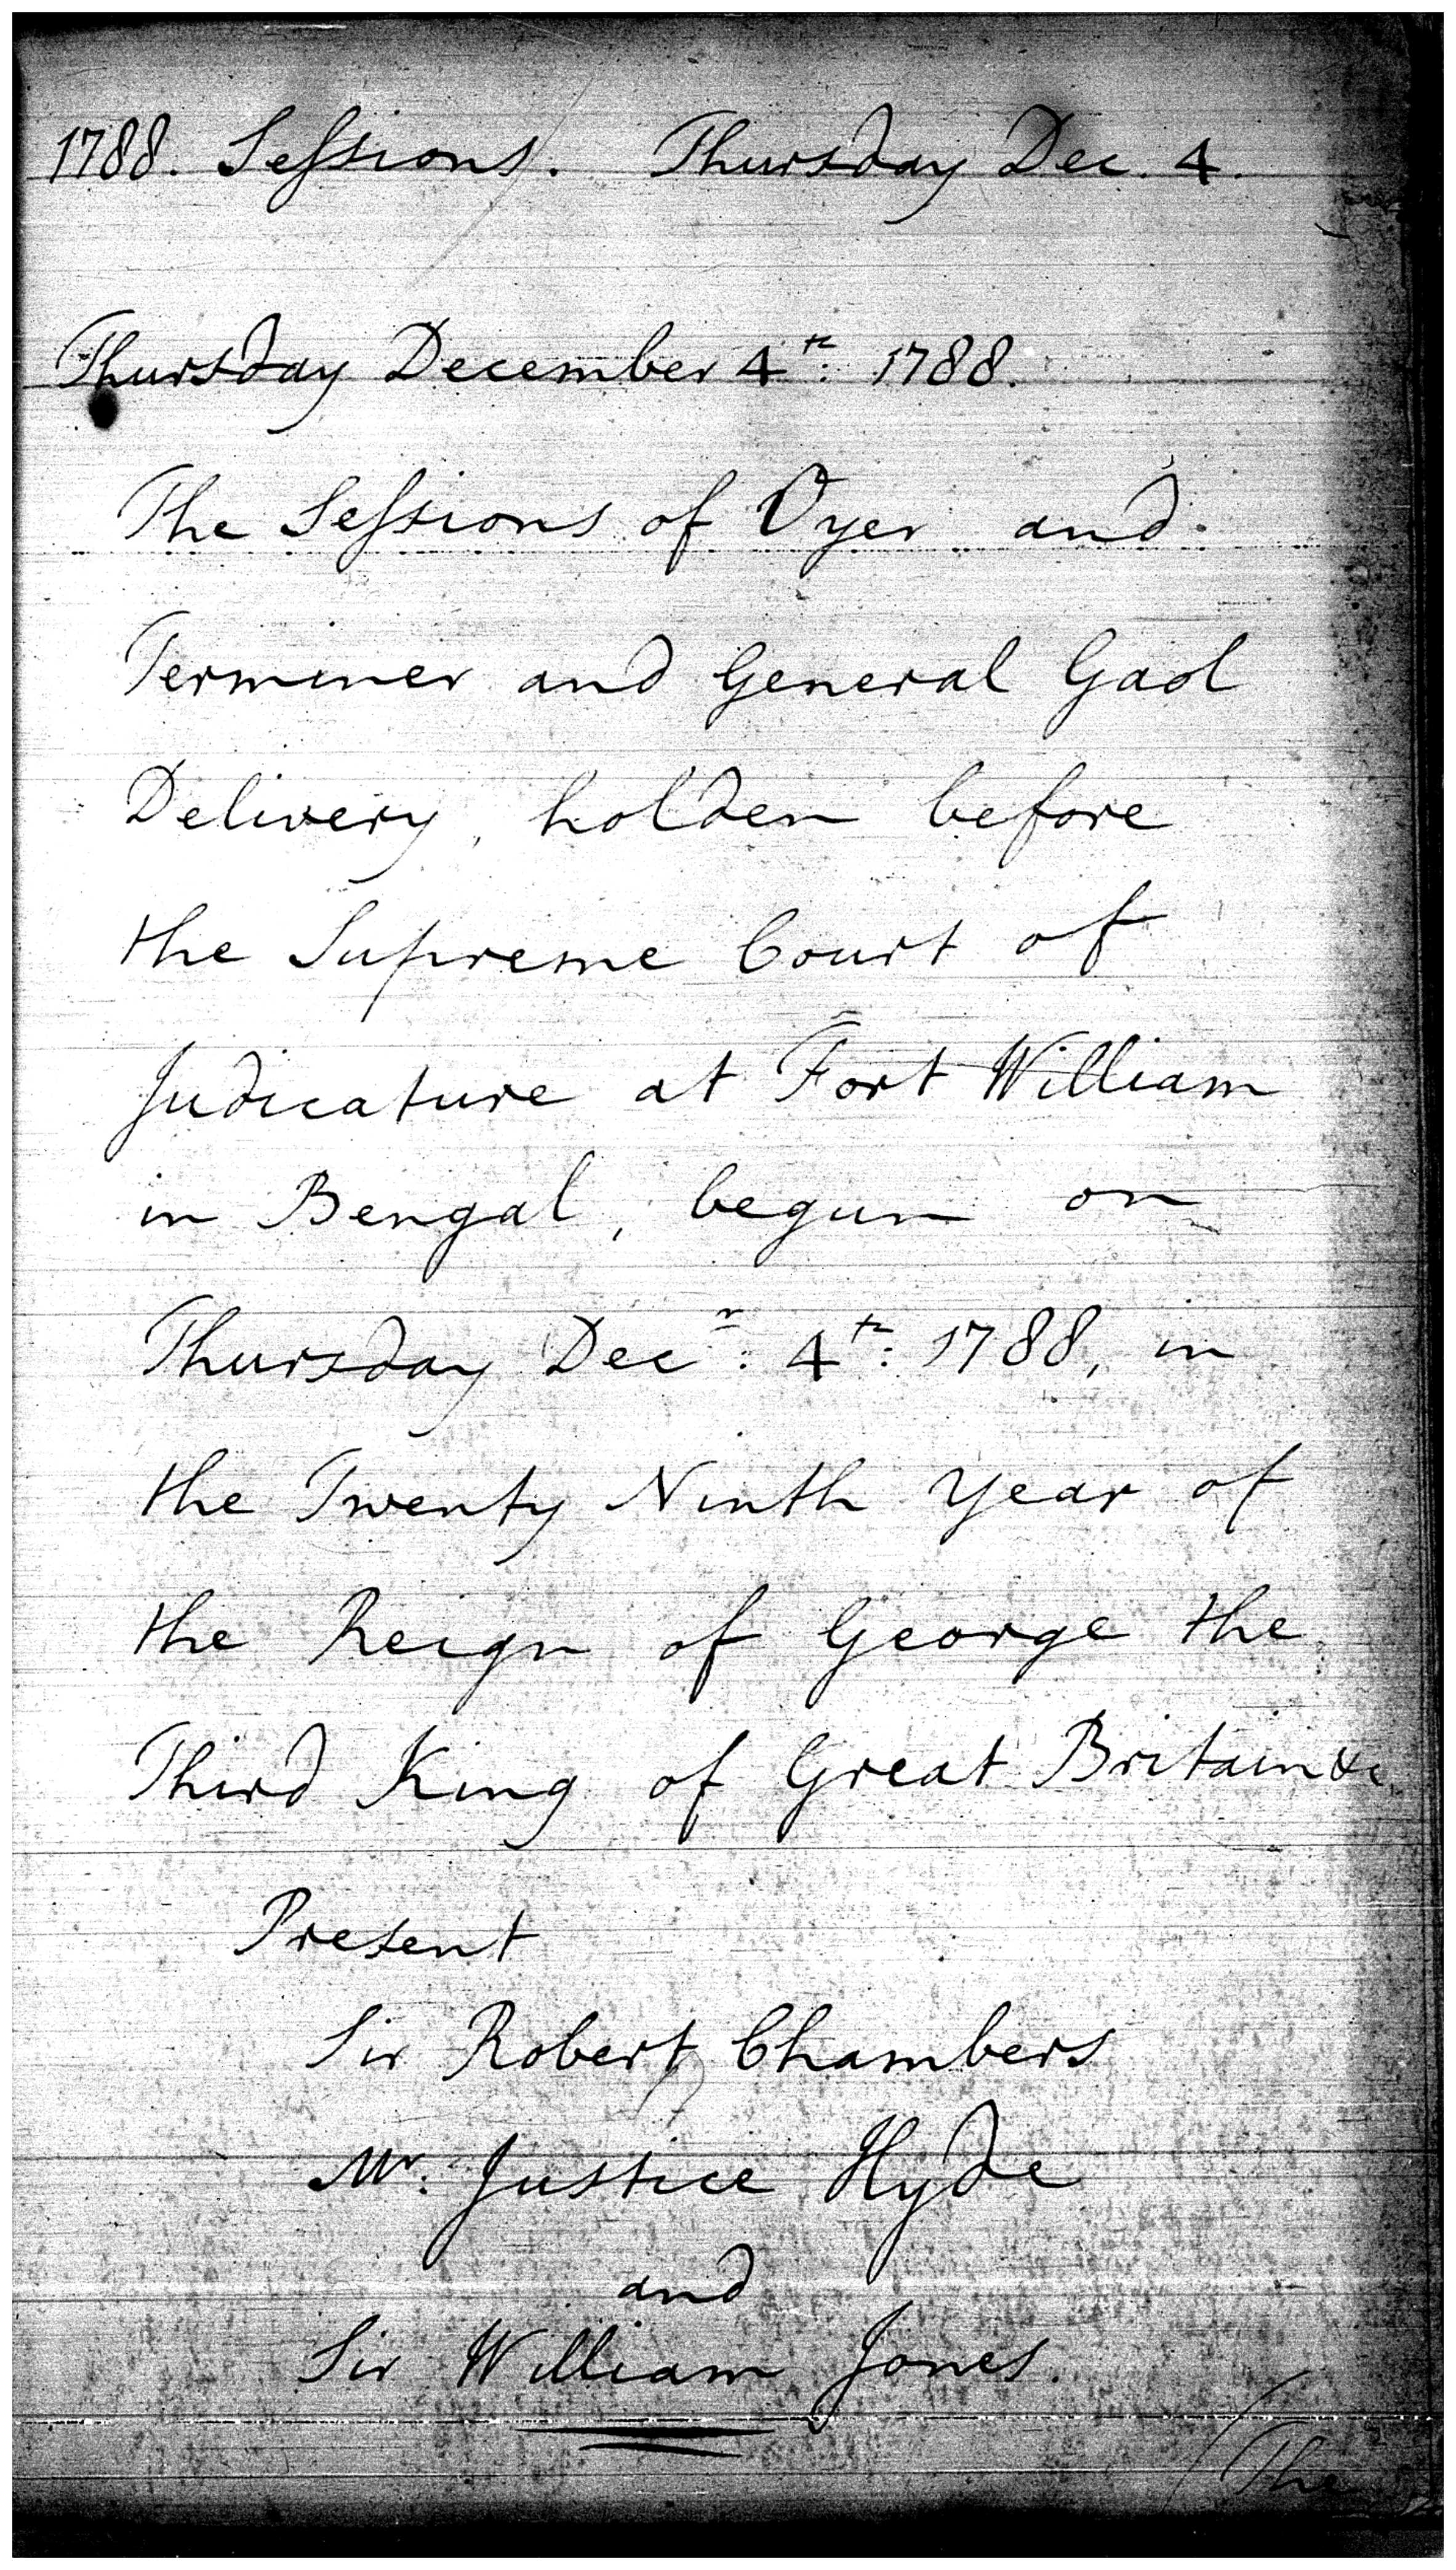 1788. Seſsions. Thursday Dec. 4.
Thursday December 4th: 1788.
The Seſsions of Oyer and
Terminer and General Gaol
Delivery, holden before
the Supreme Court of
Judicature at Fort William
in Bengal, begun on
Thursday Decr: 4th: 1788, in
the Twenty Ninth Year of
the Reign of George the
Third King of Great Britain &c
Present
Sir Robert Chambers
Mr. Justice Hyde
and
Sir William Jones.
The